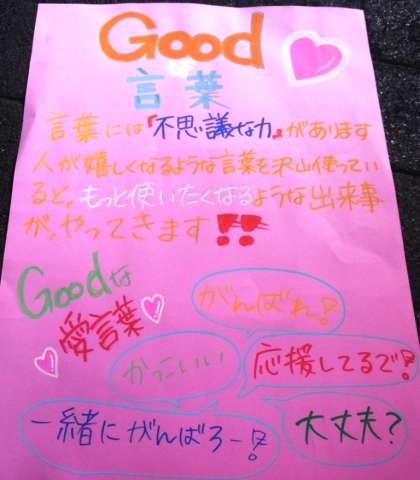 Good
言葉
言葉には『不思議な力』があります
人が嬉しくなるような言葉を沢山使ってい
ると。もっと使いたくなるような出来事
が。やってきます!!
Goodな
愛言葉
がんばれ!
かっこいい
応援してるで!
一緒にがんばろー!
大丈夫?